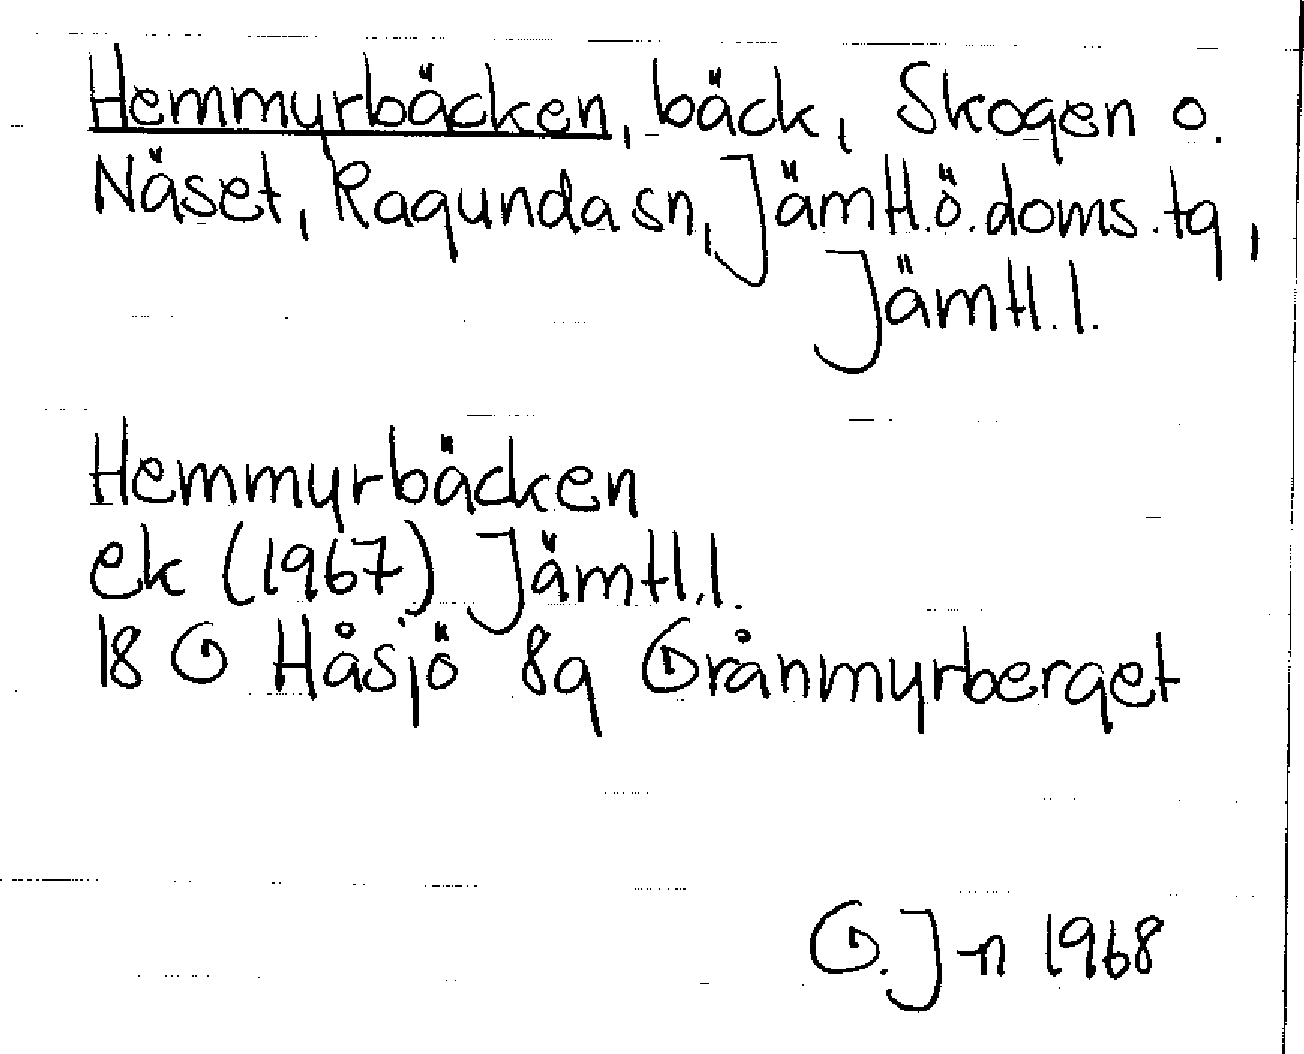 Hemmyrbäcken, bäck, Skogen o.
Näset, Ragunda sn, Jämtl.ö.doms.tg,
Jämtl.l.
Hemmyrbäcken
ek (1967) Jämtl.l.
18 G Håsjö 8g Grånmyrberget
G. J-n 1968